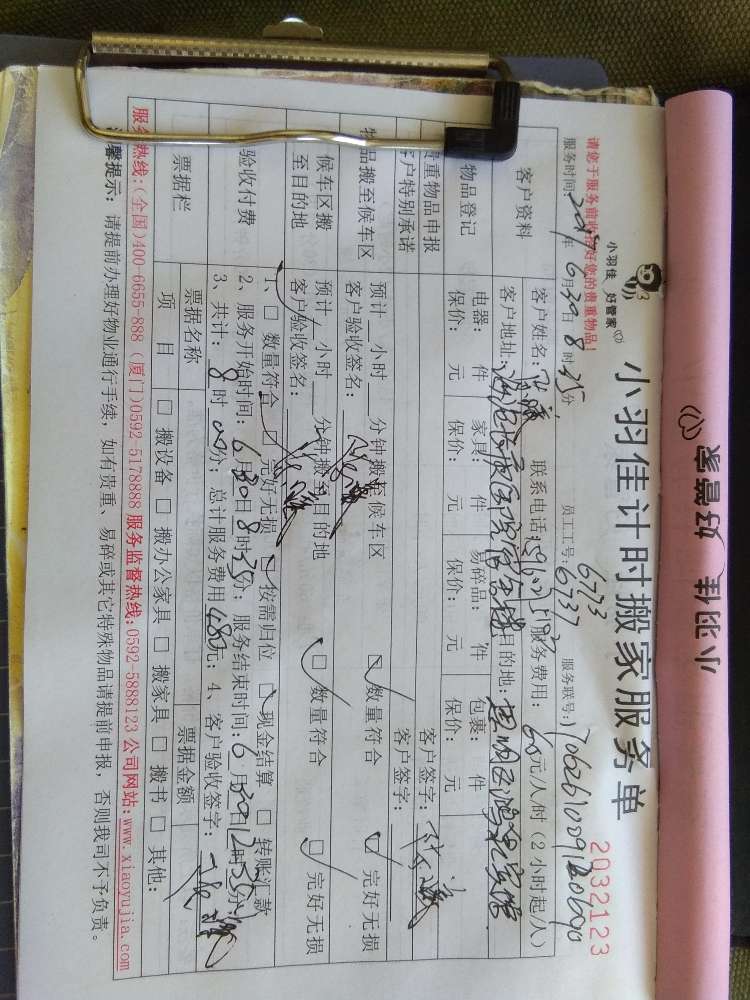 好管家 小羽佳
小羽佳计时搬家服务单
小羽佳 好管家
2032123
请您于服务前收拾好您的贵重物品!
服务时间: 2017年6月30日8时35分 员工工号: 6773 6737 服务联号:
客户资料
客户姓名: 联系电话: 服务费用: 60元/人/时(2小时起/人)
客户地址: 目的地:
物品登记
电器: 件 家具: 件 易碎品: 件 包裹: 件
保价: 元 保价: 元 保价: 元 保价: 元
贵重物品申报
客户特别承诺
客户签字:
客户签字:
物品搬至候车区
预计 小时 分钟搬至候车区
客户验收签名: 数量符合 完好无损
候车区搬
至目的地
预计 小时 分钟搬至目的地
客户验收签名: 数量符合 完好无损
验收付费
1、 数量符合 完好无损 按需归位 现金结算 转账汇款
2、服务开始时间: 6月30日8时35分; 服务结束时间: 6月30日12时35分
3、共计: 8时00分; 总计服务费用480元; 4、客户验收签字:
票据栏
票据名称 票据金额
项 目 搬设备 搬办公家具 搬家具 搬书 其他:
服务热线:(全国)400-6655-888 (厦门)0592-5178888 服务监督热线:0592-5888123 公司网站:www.xiaoyujia.com
馨提示: 请提前办理好物业通行手续, 如有贵重、易碎或其它特殊物品请提前申报, 否则我司不予负责。